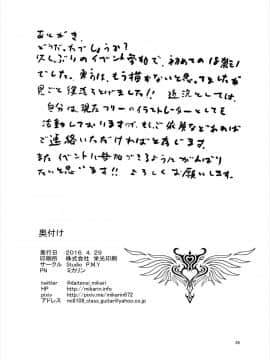 あとがき、
どうだったでしょうか?
久しぶりのイベント参加で、初めての
でした。もう描かないと思ってましたが
見ごと復活をとげました!! 近況としては、
自分は、現在フリーのイラストレーターとしても
活動しておりますので、もしご依頼などあれば
ご連絡いただければと存じます。
またイベントに参加できるようにがんばり
たいと思います!! よろしくお願いします。
奥付け
発行日 2016. 4. 29
印刷所 株式会社 栄光印刷
サークル Studio P.M.Y
PN ミカリン
twitter @daitenzi_mikari
HP http://mikarin.info
pixiv http://pixiv.me/mikarin672
アドレス